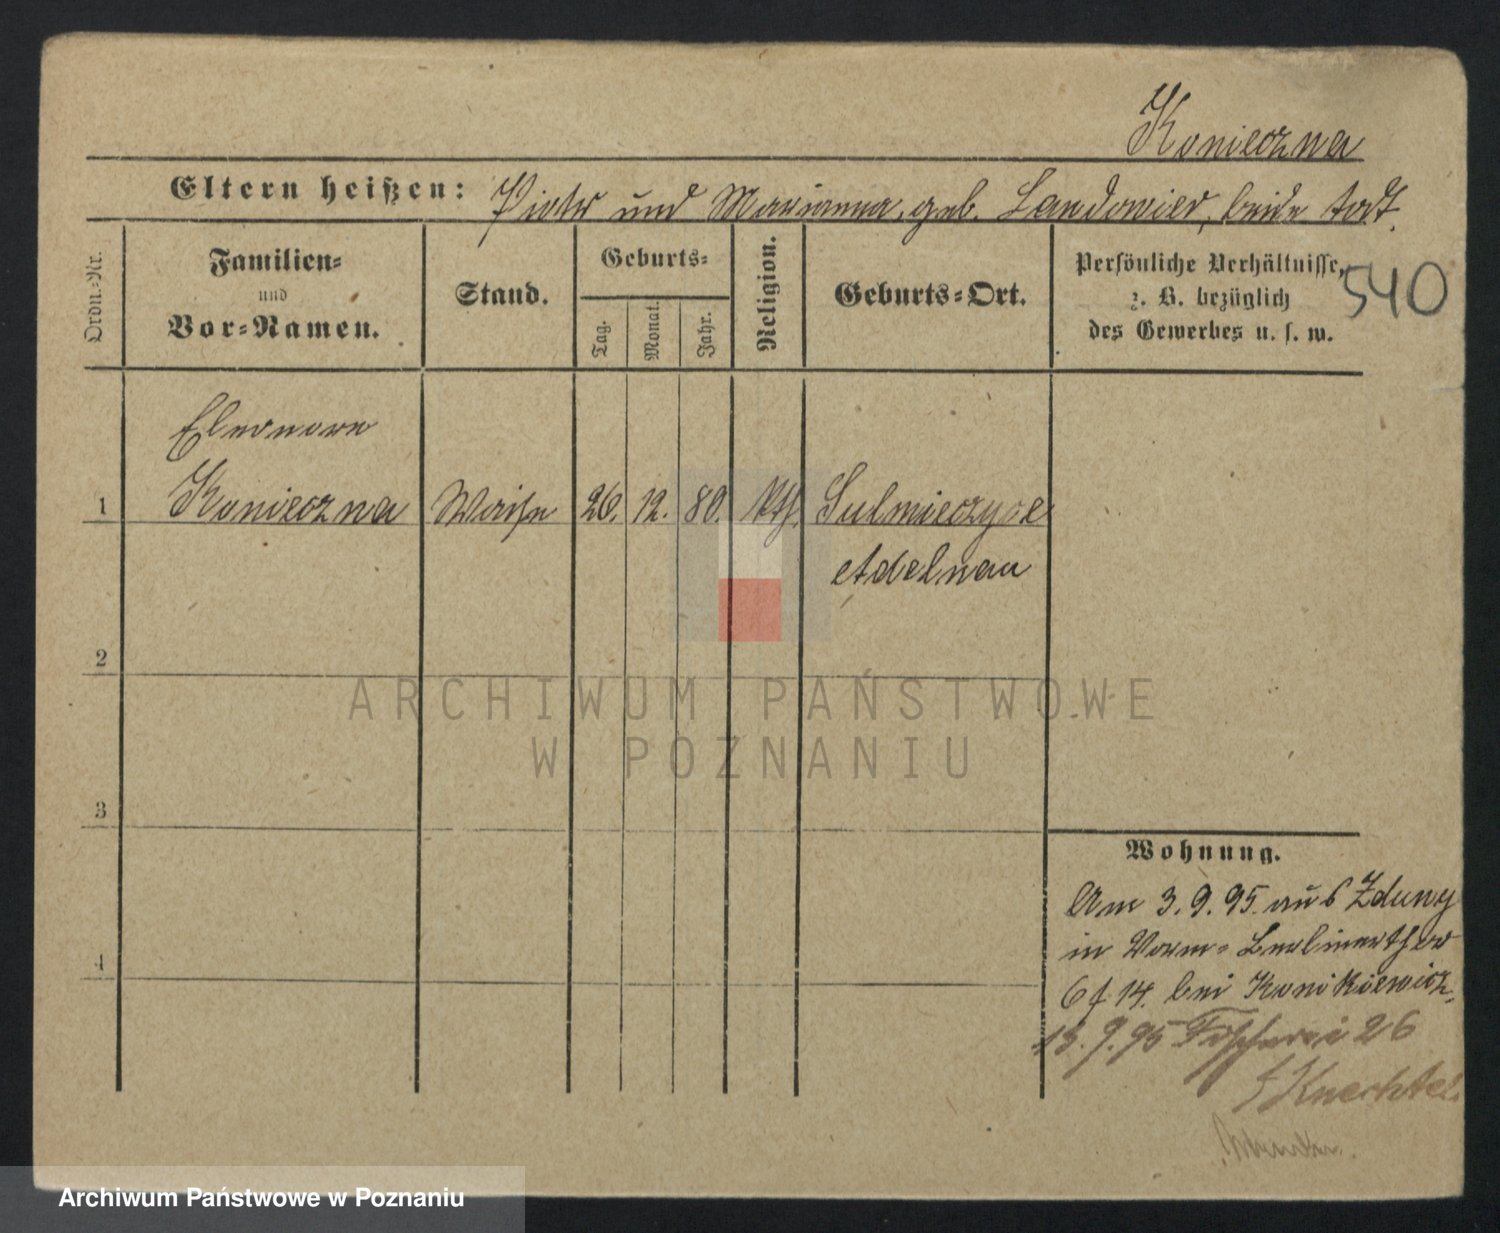 Konieczna
Eltern heißen: Piotr und Marianna, geb. Landowicz, beide todt.
Ordn.-Nr.
Familien-
und
Vor-Namen.
Stand.
Geburts-
Tag.
Monat.
Jahr.
Religion.
Geburts-Ort.
Persönliche Verhältnisse,
z. B. bezüglich
des Gewerbes u. s. w.
540
Eleonore
1 Konieczna Waise 26. 12. 80. kth. Sulmierzyce
Adelnau
2
3
4
Wohnung.
Am 3.9.95. aus Zduny
in Vorm- Berlinerthor
6 f 14. bei Konikiewicz,
13.9.95 Fischerei 26
Knechtel.
ARCHIWUM PAŃSTWOWE
W POZNANIU
Archiwum Państwowe w Poznaniu